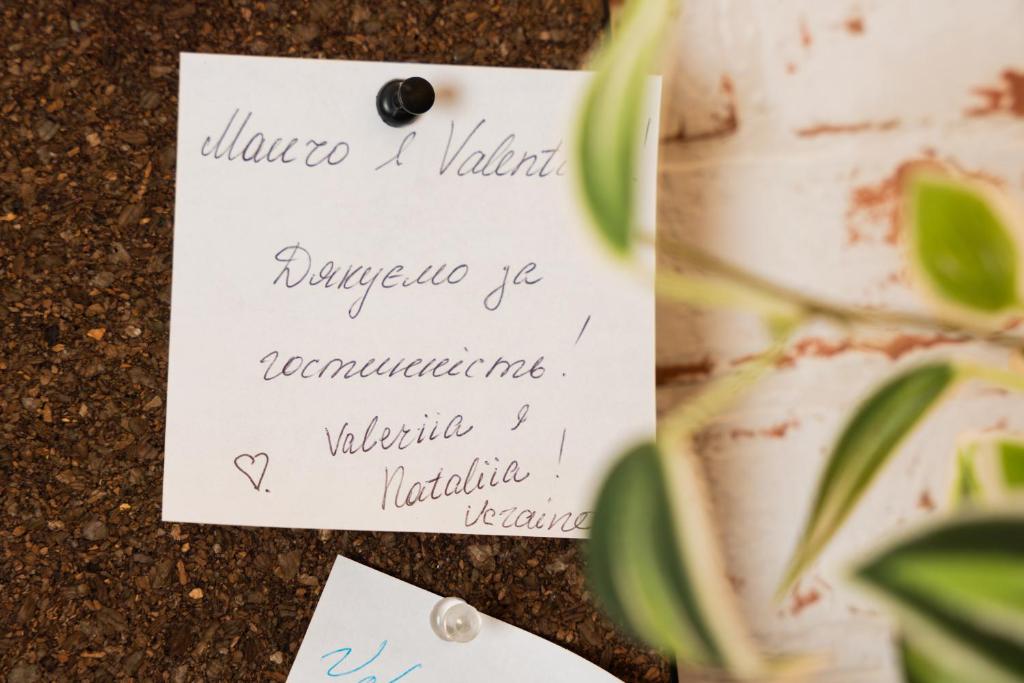 Mauro e Valent
Дякуємо за
гостинність!
Valeriia e
Nataliia!
Ukraine